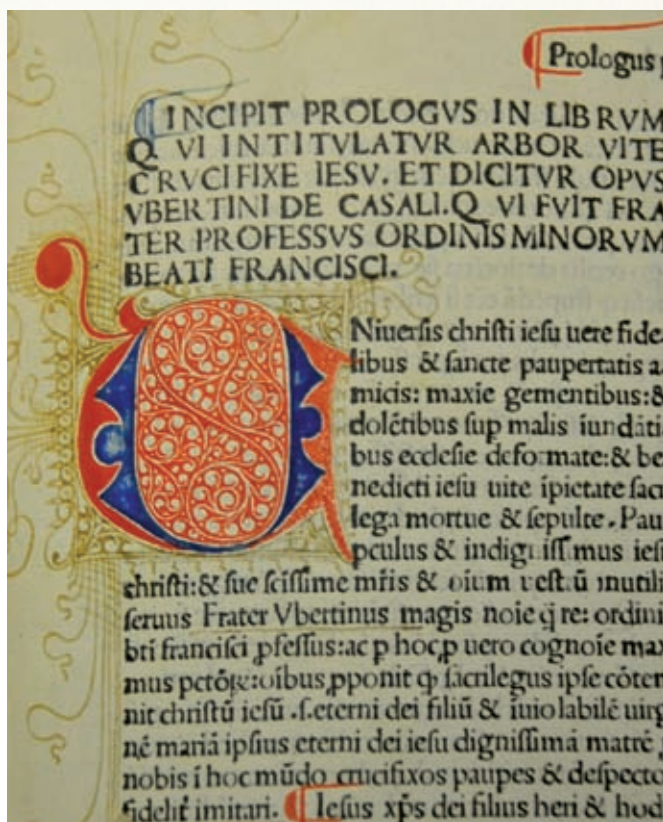 Prologus
INCIPIT PROLOGVS IN LIBRVM
Q VI INTITVLATVR ARBOR VITE
CRVCIFIXE IESV. ET DICITVR OPVS
VBERTINI DE CASALI.Q VI FVIT FRA
TER PROFESSVS ORDINIS MINORVM
BEATI FRANCISCI.
UNiuerſis chriſti ieſu uere fide
libus & ſancte paupertatis a
micis: maxīe gementibus:&
dolētibus ſup malis iundāti
bus eccleſie deformate:& be
nedicti ieſu uite īpietate ſacri
lega mortue & ſepulte. Pau
pculus & indigniſſimus ieſu
chriſti:& ſue ſciſſime mr̄is & oium ueſt.ū inutili
ſeruus Frater Vbertinus magis noīe q̄ re: ordini
bti franciſci ꝓfeſſus:ac p hoc,p uero cognoīe max
mus :oībus,pponit ꝙ ſacrilegus ipſe cōtem
nit chriſtū ieſū .ſ.eterni dei filiū & īuiolabilē uirg
nē mariā ipſius eterni dei ieſu digniſſimā matrē
nobis ī hoc mūdo crucifixos paupes & deſpecto
fidelit̄ imitari. Ieſus xp̄s dei filius heri & hod